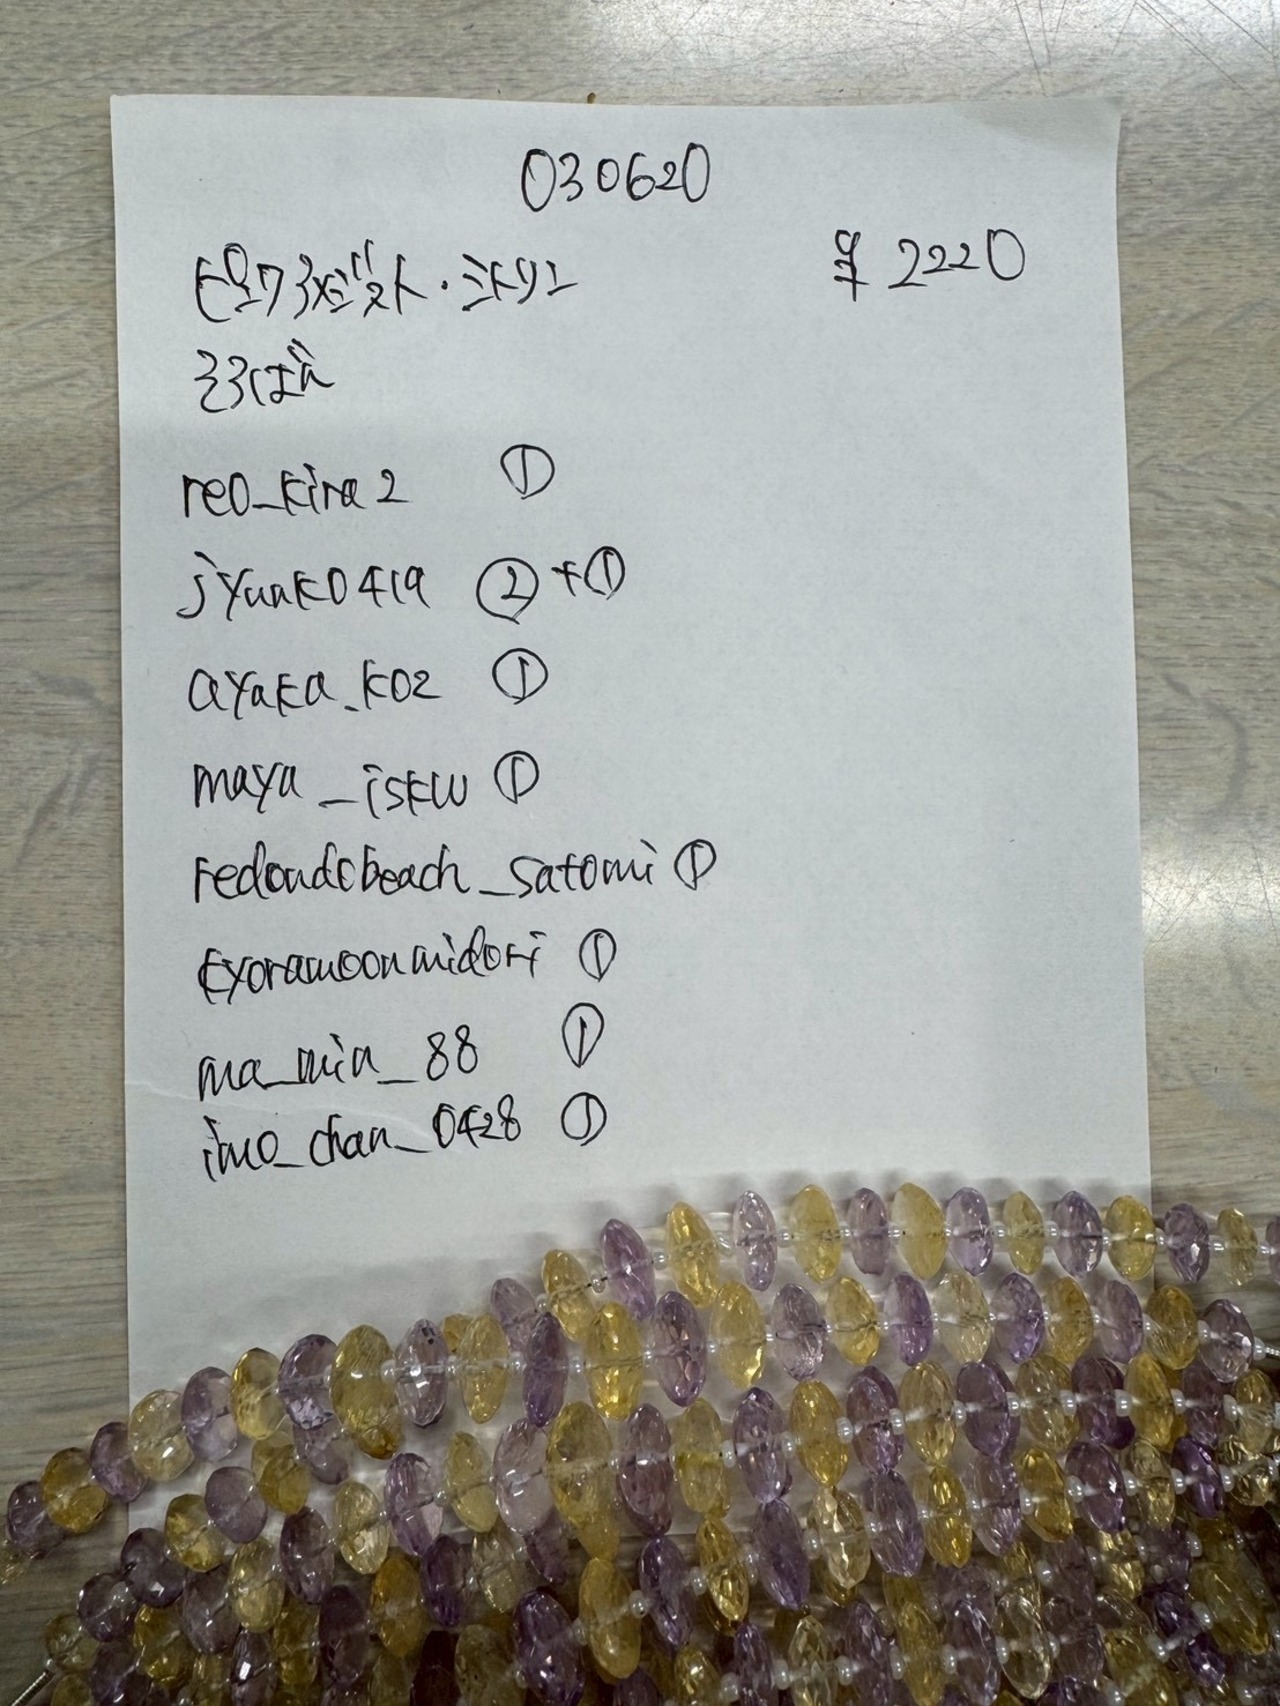 030620
ピンクアメジスト・シトリン ¥2220
そろばん
reo_kira2 ①
jyunk0419 ②+①
ayaka_k02 ①
maya_iskw ①
redondobeach_satomi ①
kyoramoonmidori ①
ma_min_88 ①
imo_chan_0428 ①